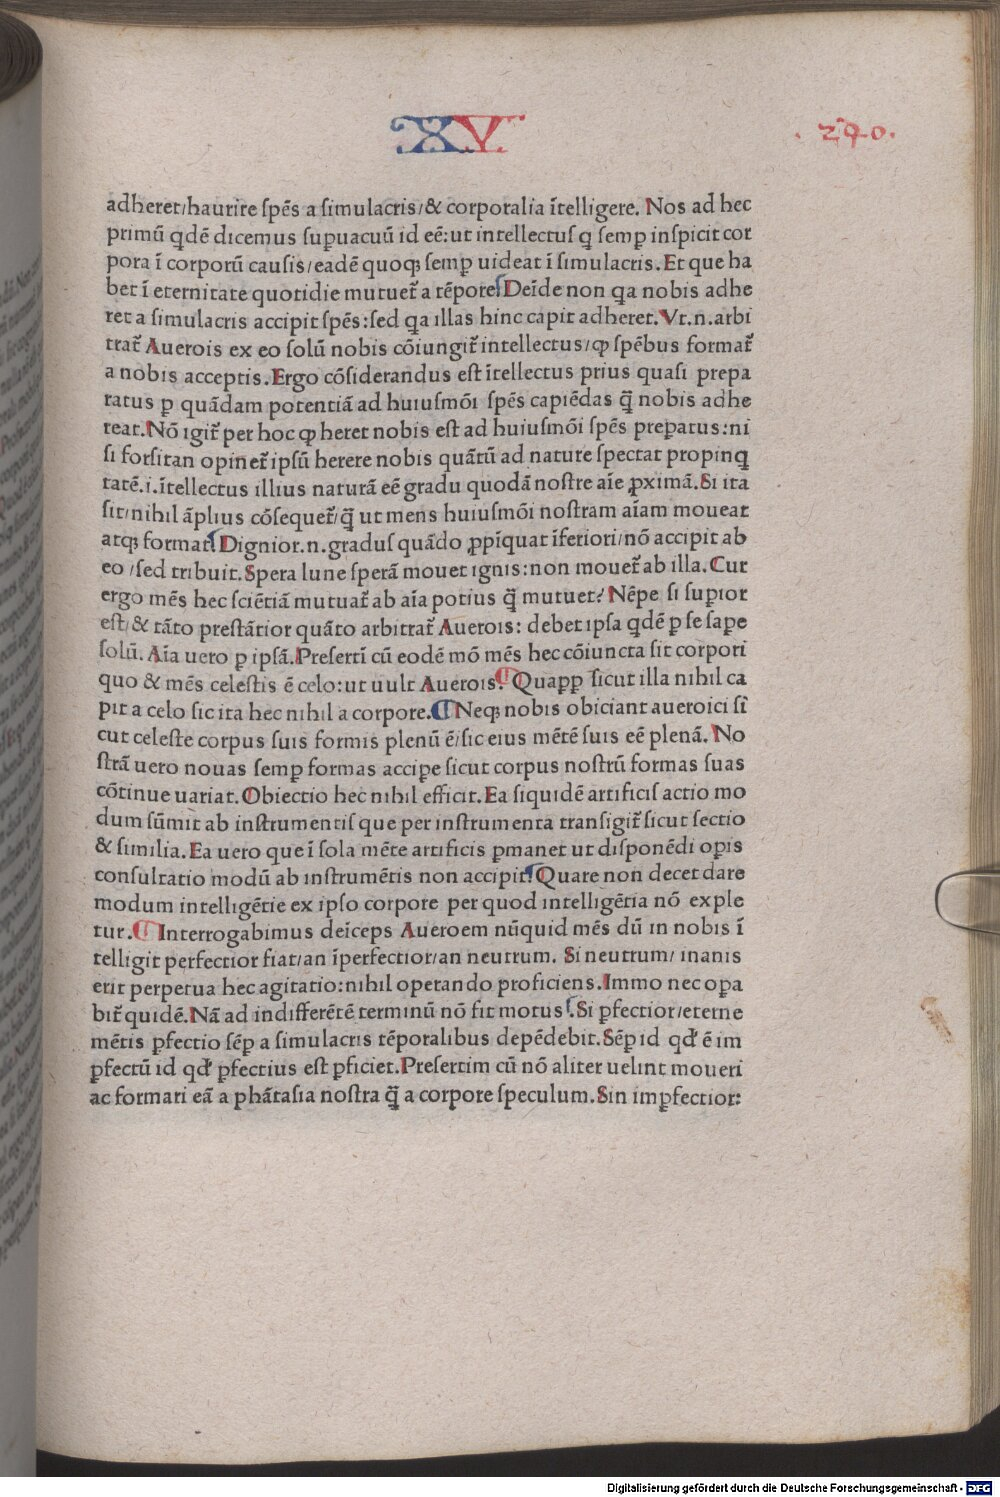 XV
.290.
adheret/haurire ſpēs a ſimulacris/& corporalia ītelligere. Nos ad hec
primū qdē dicemus ſuꝑuacuū id eē:ut intellectuſ q ſemꝑ inſpicit cor
pora ī corporū cauſis/eadē quoqꝫ ſemꝑ uideat ī ſimulacris. Et que ha
bet ī eternitate quotidie mutuet᷑ a tēporeſ Deīde non qa nobis adhe
ret a ſimulacris accipit ſpēs:ſed qa illas hinc capit adheret. Vt.n.arbi
trat᷑ Auerois ex eo ſolū nobis cōiungit᷑ intellectus/ꝙ ſpēbus format᷑
a nobis acceptis. Ergo cōſiderandus eſt ītellectus prius quaſi prepa
ratus ꝑ quādam potentiā ad huiuſmōi ſpēs capiēdas q̄ nobis adhe
reat. Nō igit᷑ per hoc ꝙ heret nobis eſt ad huiuſmōi ſpēs preparus:ni
ſi forſitan opinet᷑ ipſū herere nobis quātū ad nature ſpectat propinq
tatē.i.ītellectus illius naturā eē gradu quodā noſtre aīe ꝓximā. Si ita
ſit/nihil āplius cōſequet᷑/q̄ ut mens huiuſmōi noſtram aīam moueat
atqꝫ format. Dignior.n.graduſ quādo ꝓpīquat īferiori/nō accipit ab
eo /ſed tribuit. Spera lune ſperā mouet ignis:non mouet᷑ ab illa. Cur
ergo mēs hec ſciētiā mutuat᷑ ab aīa potius q̄ mutuet? Nēpe ſi ſuꝑior
eſt/& tāto preſtātior quāto arbitrat᷑ Auerois: debet ipſa qdē ꝑ ſe ſaꝑe
ſolū. Aīa uero ꝑ ipſā. Preſertī cū eodē mō mēs hec cōiuncta ſit corpori
quo & mēs celeſtis ē celo:ut uult Auerois. ¶ Quapꝓp ſicut illa nihil ca
pit a celo ſic ita hec nihil a corpore. ¶ Neqꝫ nobis obiciant aueroici ſi
cut celeſte corpus ſuis formis plenū ē/ſic eius mētē ſuis eē plenā. No
ſtrā uero nouas ſemꝑ formas acciꝑe ſicut corpus noſtrū formas ſuas
cōtinue uariat. Obiectio hec nihil efficit. Ea ſiquidē artificiſ actio mo
dum ſūmit ab inſtrumentiſ que per inſtrumenta tranſigit᷑ ſicut ſectio
& ſimilia. Ea uero que ī ſola mēte artificis ꝑmanet ut diſponēdi oꝑis
conſultatio modū ab inſtrumētis non accipit. Quare non decet dare
modum intelligētie ex ipſo corpore per quod intelligētia nō exple
tur. ¶ Interrogabimus deīceps Aueroem nūquid mēs dū in nobis ī
telligit perfectior fiat/an īperfectior/an neutrum. Si neutrum/ inanis
erit perpetua hec agitatio:nihil operando proficiens. Immo nec oꝑa
bit᷑ quidē. Nā ad indifferētē terminū nō fit motus. Si ꝑfectior/eterne
mētis ꝑfectio ſēꝑ a ſimulacris tēporalibus depēdebit. Sēꝑ id qđ ē im
ꝑfectū id qđ ꝑfectius eſt ꝑficiet. Preſertim cū nō aliter uelint moueri
ac formari eā a phātaſia noſtra q̄ a corpore ſpeculum. Sin imꝑfectior:
Digitalisierung gefördert durch die Deutsche Forschungsgemeinschaft - DFG